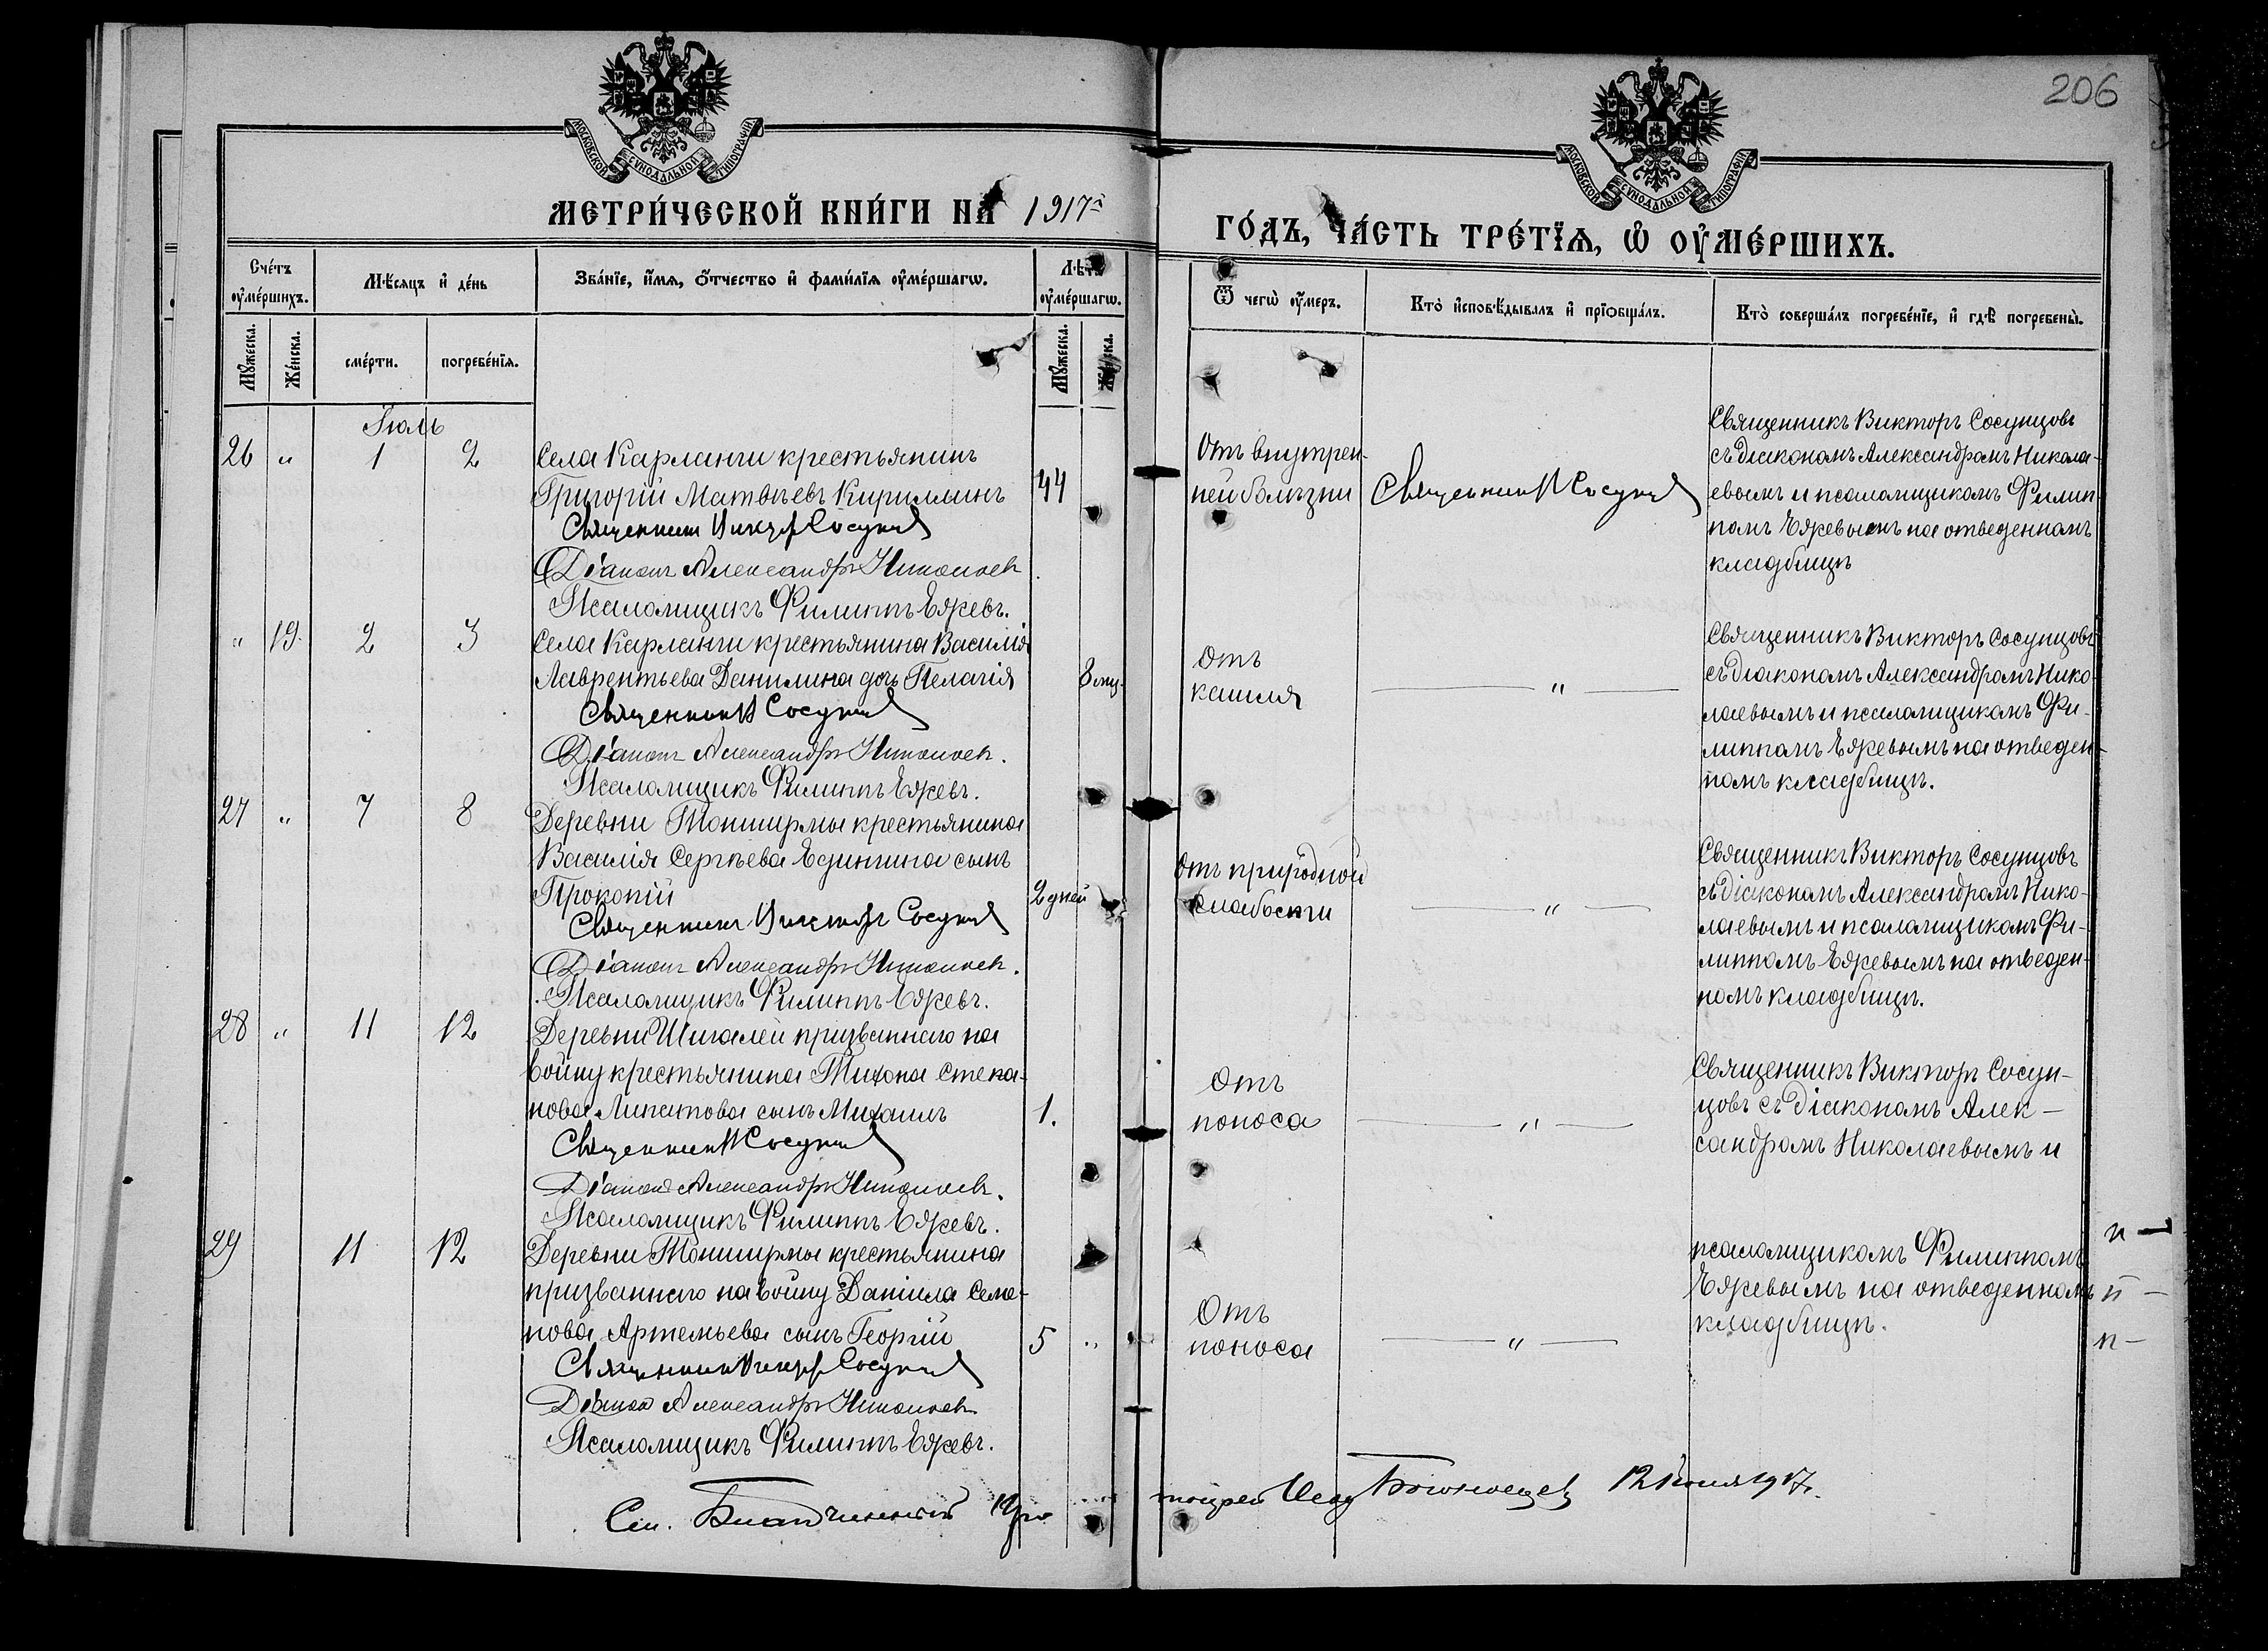 206
МОСКОВСКОЙ СУНОДАЛЬНОЙ ТИПОГРАФІИ
МОСКОВСКОЙ СУНОДАЛЬНОЙ ТИПОГРАФІИ
МЕТРИ́ЧЕСКОЙ КНИ́ГИ НА 1917й
ГО́ДЪ, ЧА́СТЬ ТРЕ́ТЇЯ, Ѡ ОУ҆МЕ́РШИХЪ.
Сче́тъ оу҆ме́ршихъ.
Мѣ́сяцъ и҆ де́нь
Зва́нїе, и҆́мя, ѻ҆́тчество и҆ фамѝлїя оу҆ме́ршагѡ.
Лѣта оу҆ме́ршагѡ.
Ѿ чегѡ̀ оу҆́меръ.
Кто̀ и҆сповѣ́дывалъ и҆ прїѡбща́лъ.
Кто̀ соверша́лъ погребе́нїе, и҆ гдѣ̀ погребены̀.
Мꙋ́жеска.
Же́нска.
сме́рти.
погребе́нїя.
Мꙋ́жеска.
Іюль
26 " 1 2
Села Карланги крестьянинъ
Григорій Матвѣевъ Кириллинъ
44
Священникъ Викторъ Сосунцовъ
Діаконъ Александръ Николаевъ
Псаломщикъ Филиппъ Ежевъ.
Отъ внутрен-
ней болѣзни
Священникъ В Сосунцовъ
Священникъ Викторъ Сосунцовъ
съ діакономъ Александромъ Никола-
евымъ и псаломщикомъ Филип-
помъ Ежевымъ на отведенномъ
кладбищѣ
" 19. 2 3
Села Карланги крестьянина Василія
Лаврентьева Данилина дочь Пелагія
8 мц.
Священникъ В Сосунцовъ
Діаконъ Александръ Николаевъ.
Псаломщикъ Филиппъ Ежевъ.
Отъ
кашля
"
Священникъ Викторъ Сосунцовъ
съ діакономъ Александромъ Нико-
лаевымъ и псаломщикомъ Фи-
липпомъ Ежевымъ на отведен-
номъ кладбищѣ.
27 " 7 8
Деревни Тонширмы крестьянина
Василія Сергѣева Едингина сынъ
Прокопій
2 дней
Священникъ Викторъ Сосунцовъ
Діаконъ Александръ Николаевъ.
Псаломщикъ Филиппъ Ежевъ.
Отъ природной
слабости
"
Священникъ Викторъ Сосунцовъ
съ діакономъ Александромъ Нико-
лаевымъ и псаломщикомъ Фи-
липпомъ Ежевымъ на отведен-
номъ кладбищѣ.
28 " 11 12
Деревни Шигалей призваннаго на
войну крестьянина Тихона Степа-
нова Липатова сынъ Михаилъ
1.
Священникъ В Сосунцовъ
Діаконъ Александръ Николаевъ.
Псаломщикъ Филиппъ Ежевъ.
Отъ
поноса
"
Священникъ Викторъ Сосун-
цовъ съ діакономъ Алек-
сандромъ Николаевымъ и
29 11 12
Деревни Тонширмы крестьянина
призваннаго на войну Даніила Семе-
нова Артемьева сынъ Георгій
5 "
Священникъ Викторъ Сосунцовъ
Діаконъ Александръ Николаевъ.
Псаломщикъ Филиппъ Ежевъ.
Отъ
поноса
"
псаломщикомъ Филиппомъ
Ежевымъ на отведенномъ
кладбищѣ.
п —
п —
п —
См. Благочинный
12 іюля 1917.